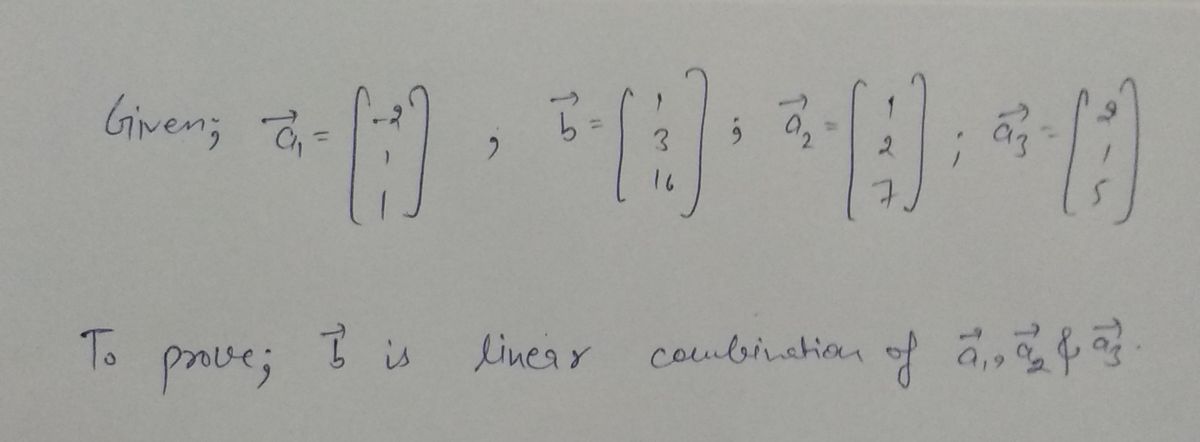 Given; a⃗₁ = [-2 1 1] , b⃗ = [1 3 16] ; a⃗₂ = [1 2 7] ; a⃗₃ = [2 1 5]
To prove; b⃗ is linear combination of a⃗₁, a⃗₂ & a⃗₃.